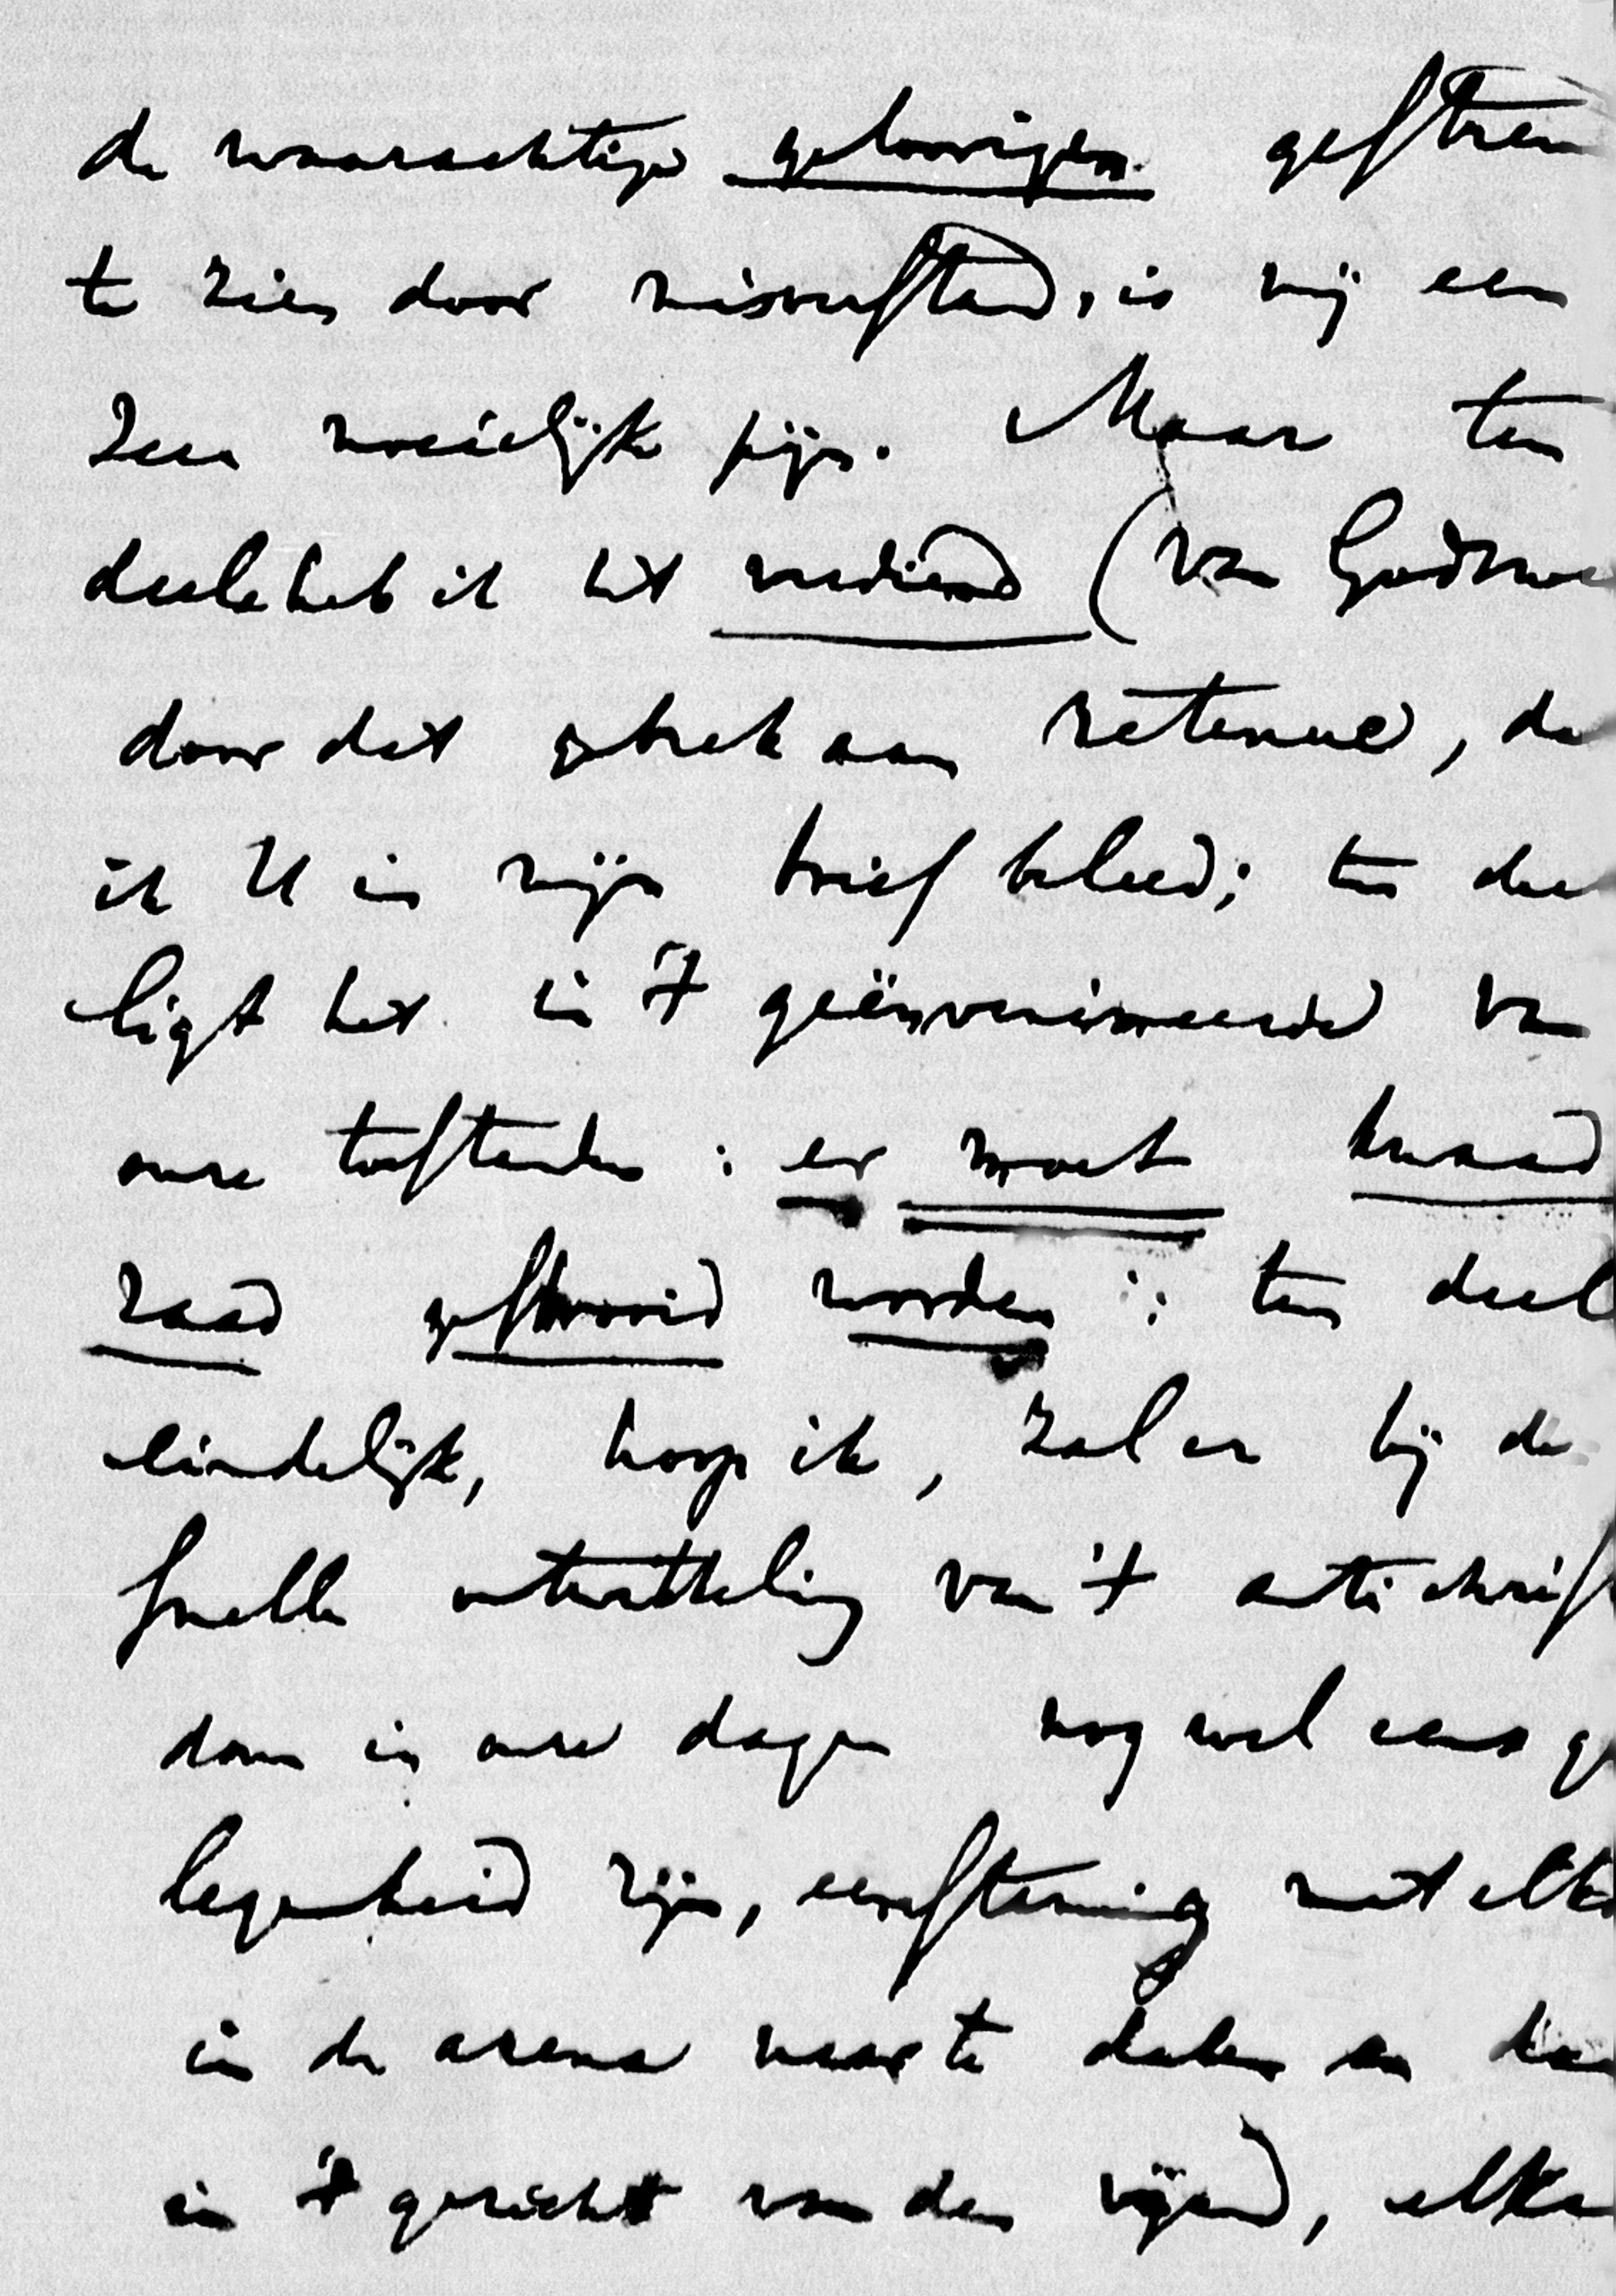 de waarachtige geloovigen gestren
te zien door misverstand, is mij een
zeer moeielijke pijn. Maar ten
deele heb ik het verdiend (van Godswe
door dat gebrek aan retenue, da
ik U in mijn brief beleed; ten dee
ligt het in 't geënvenimeerde van
onze toestanden : er moet kwaad
zaad gestrooid worden : ten deel
eindelijk, hoop ik, zal er bij de
snelle ontwikkeling van 't antichris
dom in onze dagen nog wel eens ge
legenheid zijn, eenstemmig met elka
in de arena neer te dalen en daa
in 't gezicht van den vijand, elka